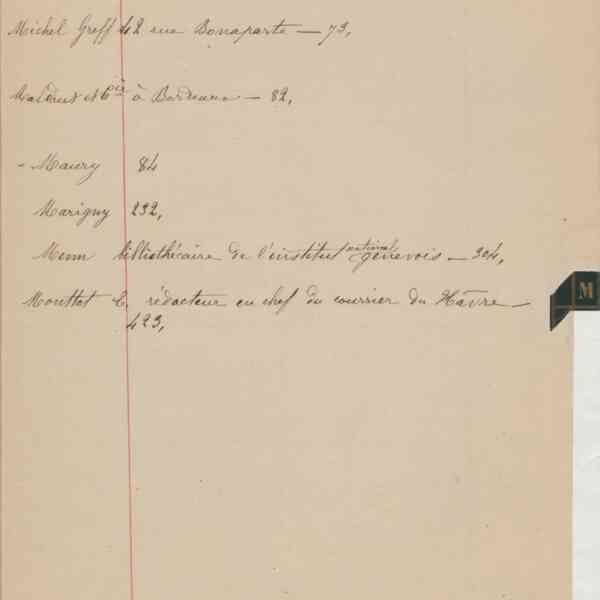 Michel Greff 42 rue Bonaparte — 73,
et Cie à Bordeaux — 82,
- Maury 84
Marigny 232,
Menn bibliothécaire de l'institut national genevois — 304,
Mouttet E. rédacteur en chef du courrier du Hâvre —
423,
M